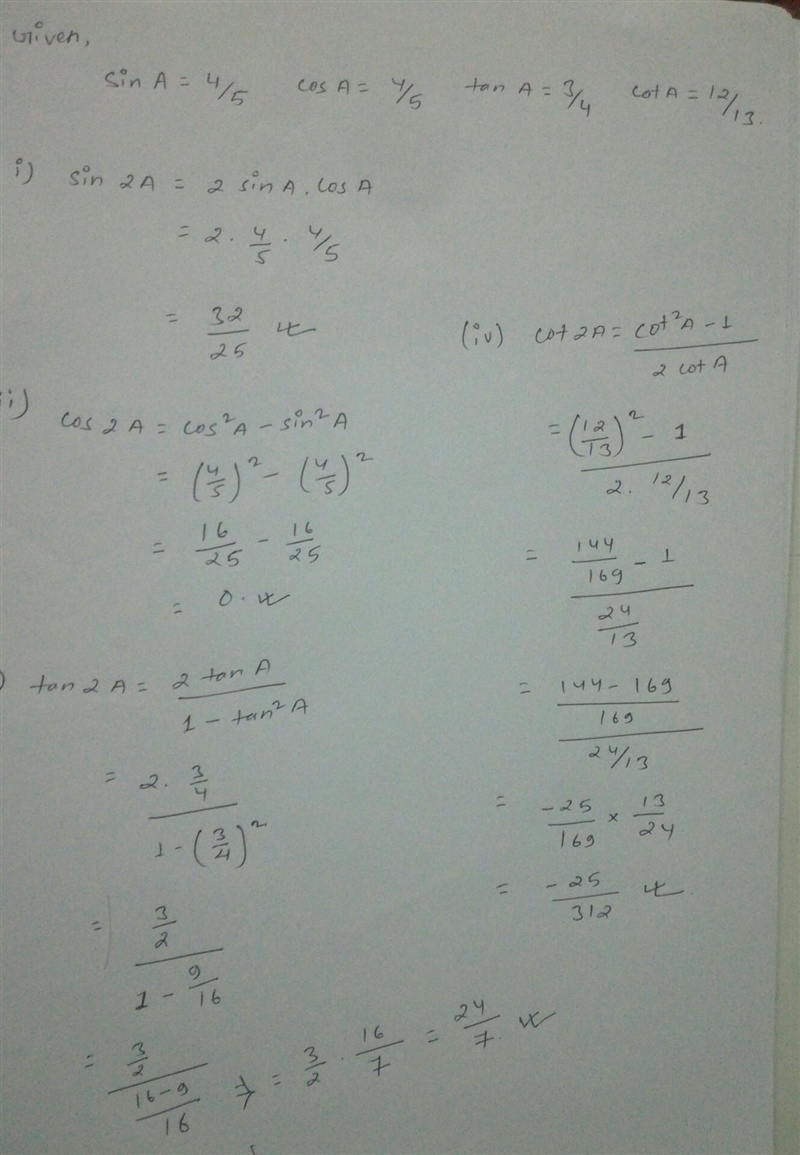 Given,
sin A = 4/5 cos A = 4/5 tan A = 3/4 cot A = 12/13.
i) sin 2A = 2 sin A . cos A
= 2 . 4/5 . 4/5
= 32/25
ii) cos 2A = cos²A - sin²A
= (4/5)² - (4/5)²
= 16/25 - 16/25
= 0.
) tan 2A = 2 tan A / 1 - tan²A
= 2 . 3/4 / 1 - (3/4)²
= 3/2 / 1 - 9/16
= 3/2 / 16-9/16 = 3/2 . 16/7 = 24/7
(iv) cot 2A = cot²A - 1 / 2 cot A
= (12/13)² - 1 / 2 . 12/13
= 144/169 - 1 / 24/13
= 144 - 169/169 / 24/13
= -25/169 × 13/24
= -25/312